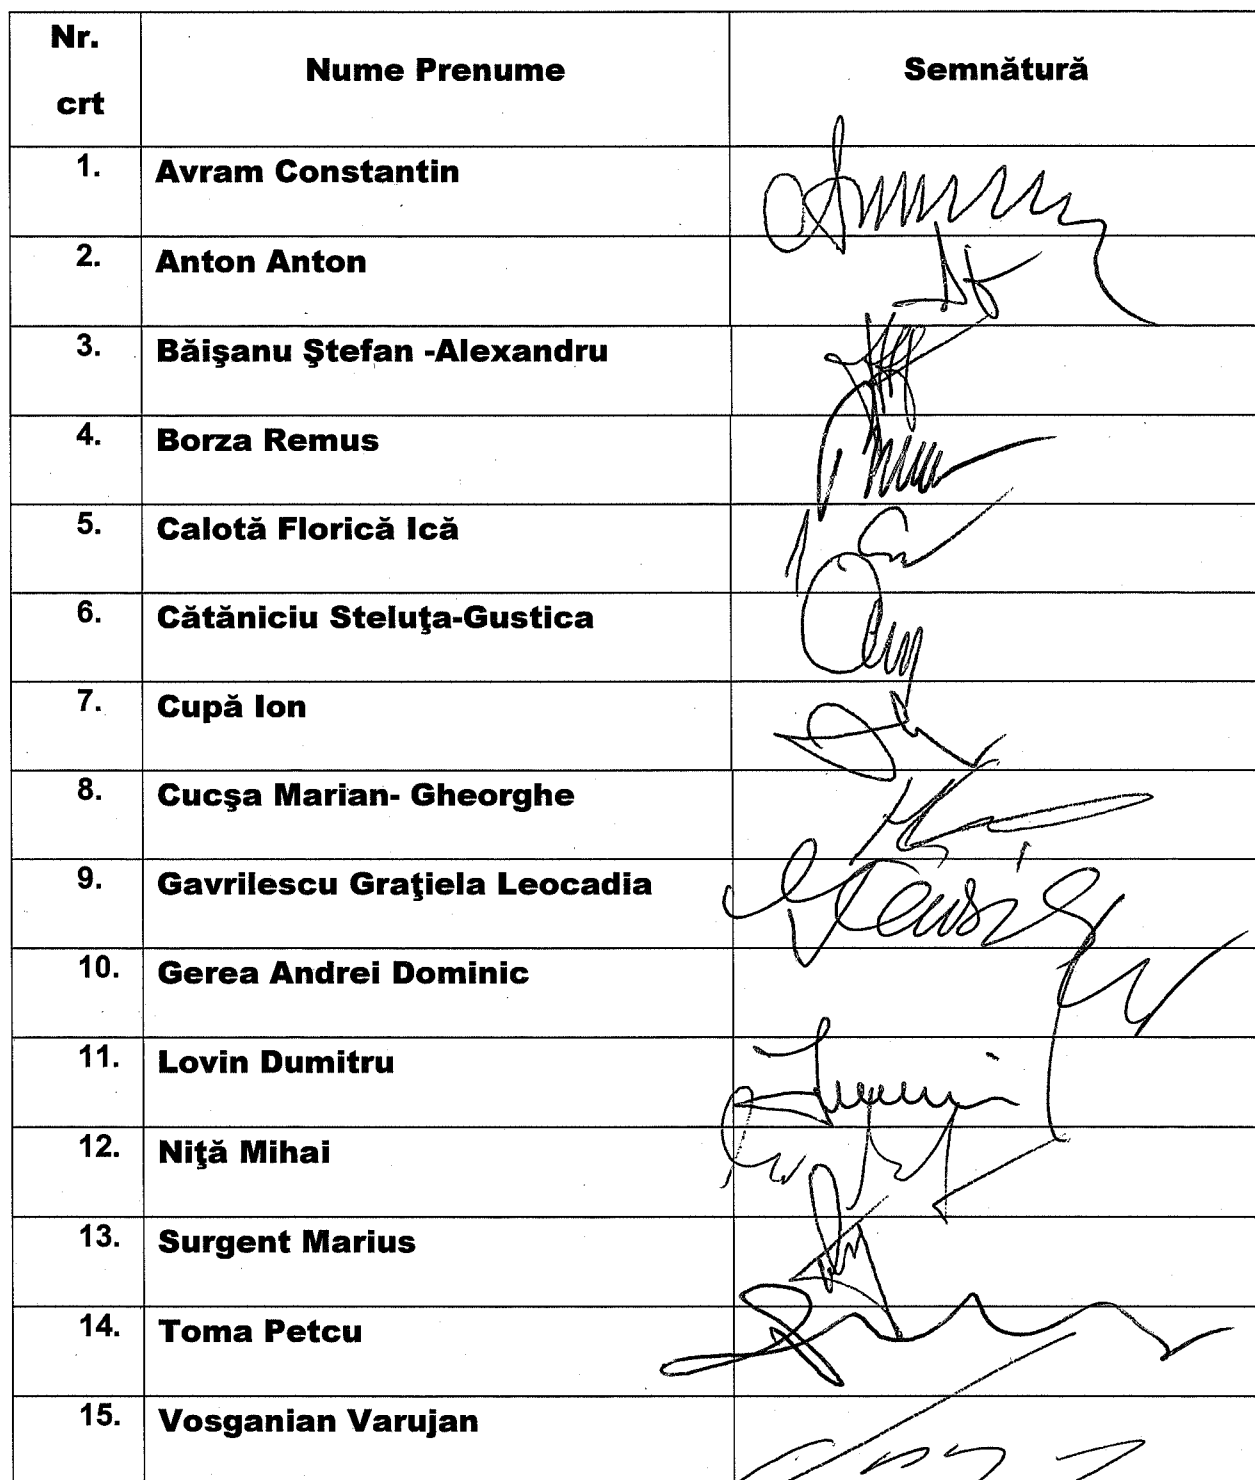 Nr.
crt
Nume Prenume
Semnătură
1. Avram Constantin
2. Anton Anton
3. Băişanu Ştefan -Alexandru
4. Borza Remus
5. Calotă Florică Ică
6. Cătăniciu Steluţa-Gustica
7. Cupă Ion
8. Cucşa Marian- Gheorghe
9. Gavrilescu Graţiela Leocadia
10. Gerea Andrei Dominic
11. Lovin Dumitru
12. Niţă Mihai
13. Surgent Marius
14. Toma Petcu
15. Vosganian Varujan